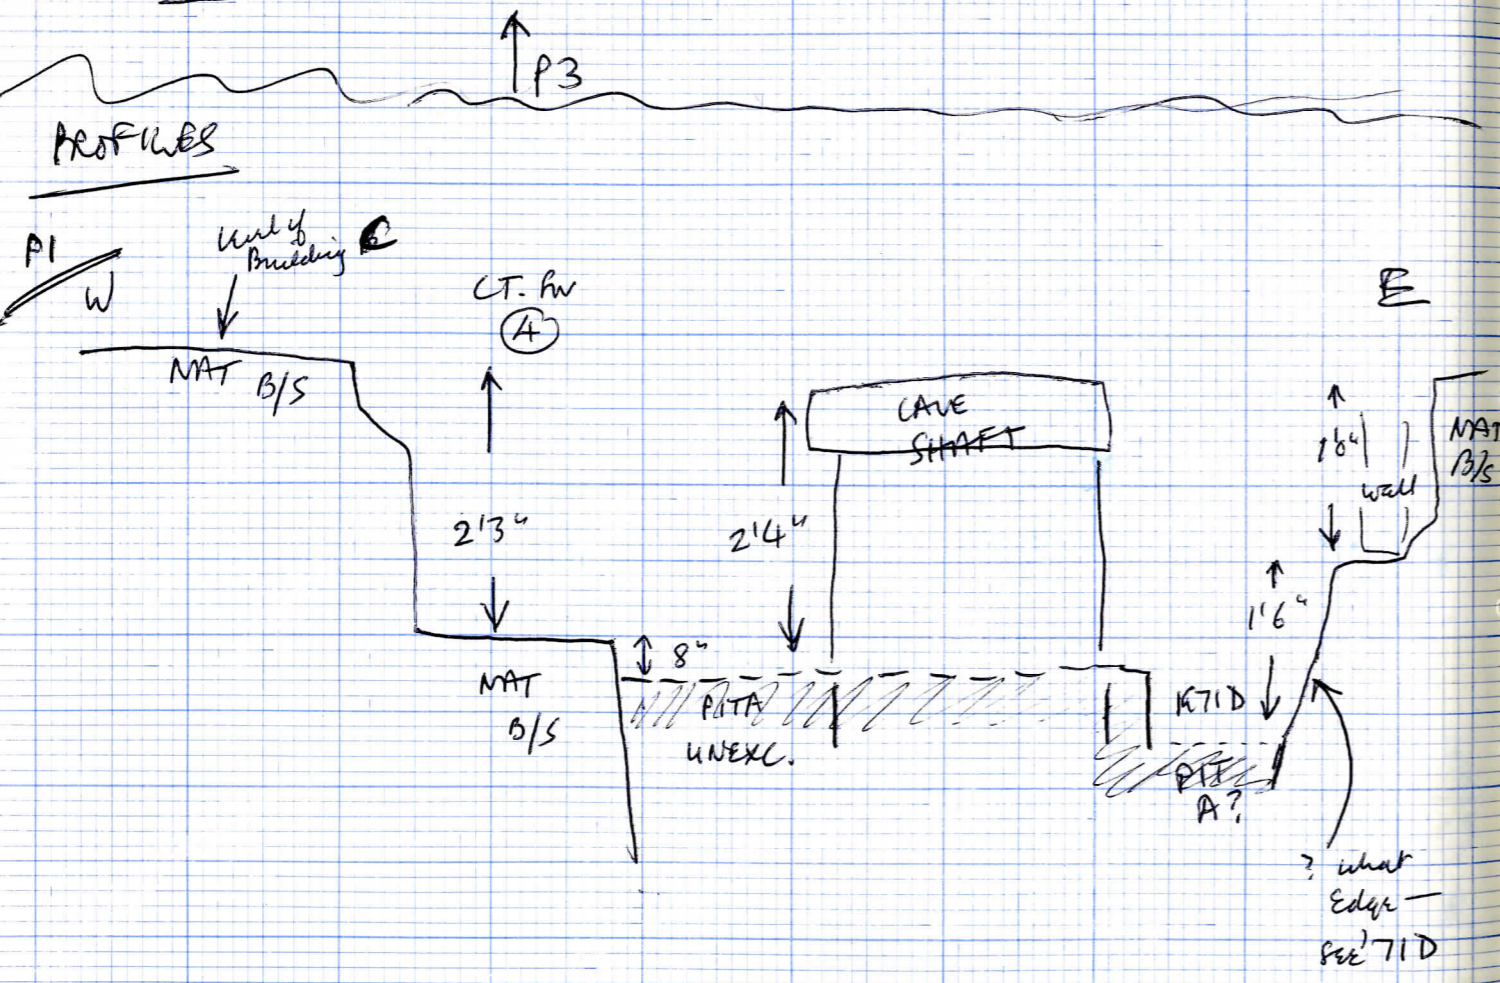 P3
PROFILES
P1
W
Level of
Building C
CT.
4
E
NAT
B/S
CAVE
SHAFT
1'6"
wall
NAT
B/S
2'3"
2'4"
1'6"
8"
NAT
B/S
PIT A
UNEXC.
K71D
PIT
A?
? what
Edge —
SEE '71D